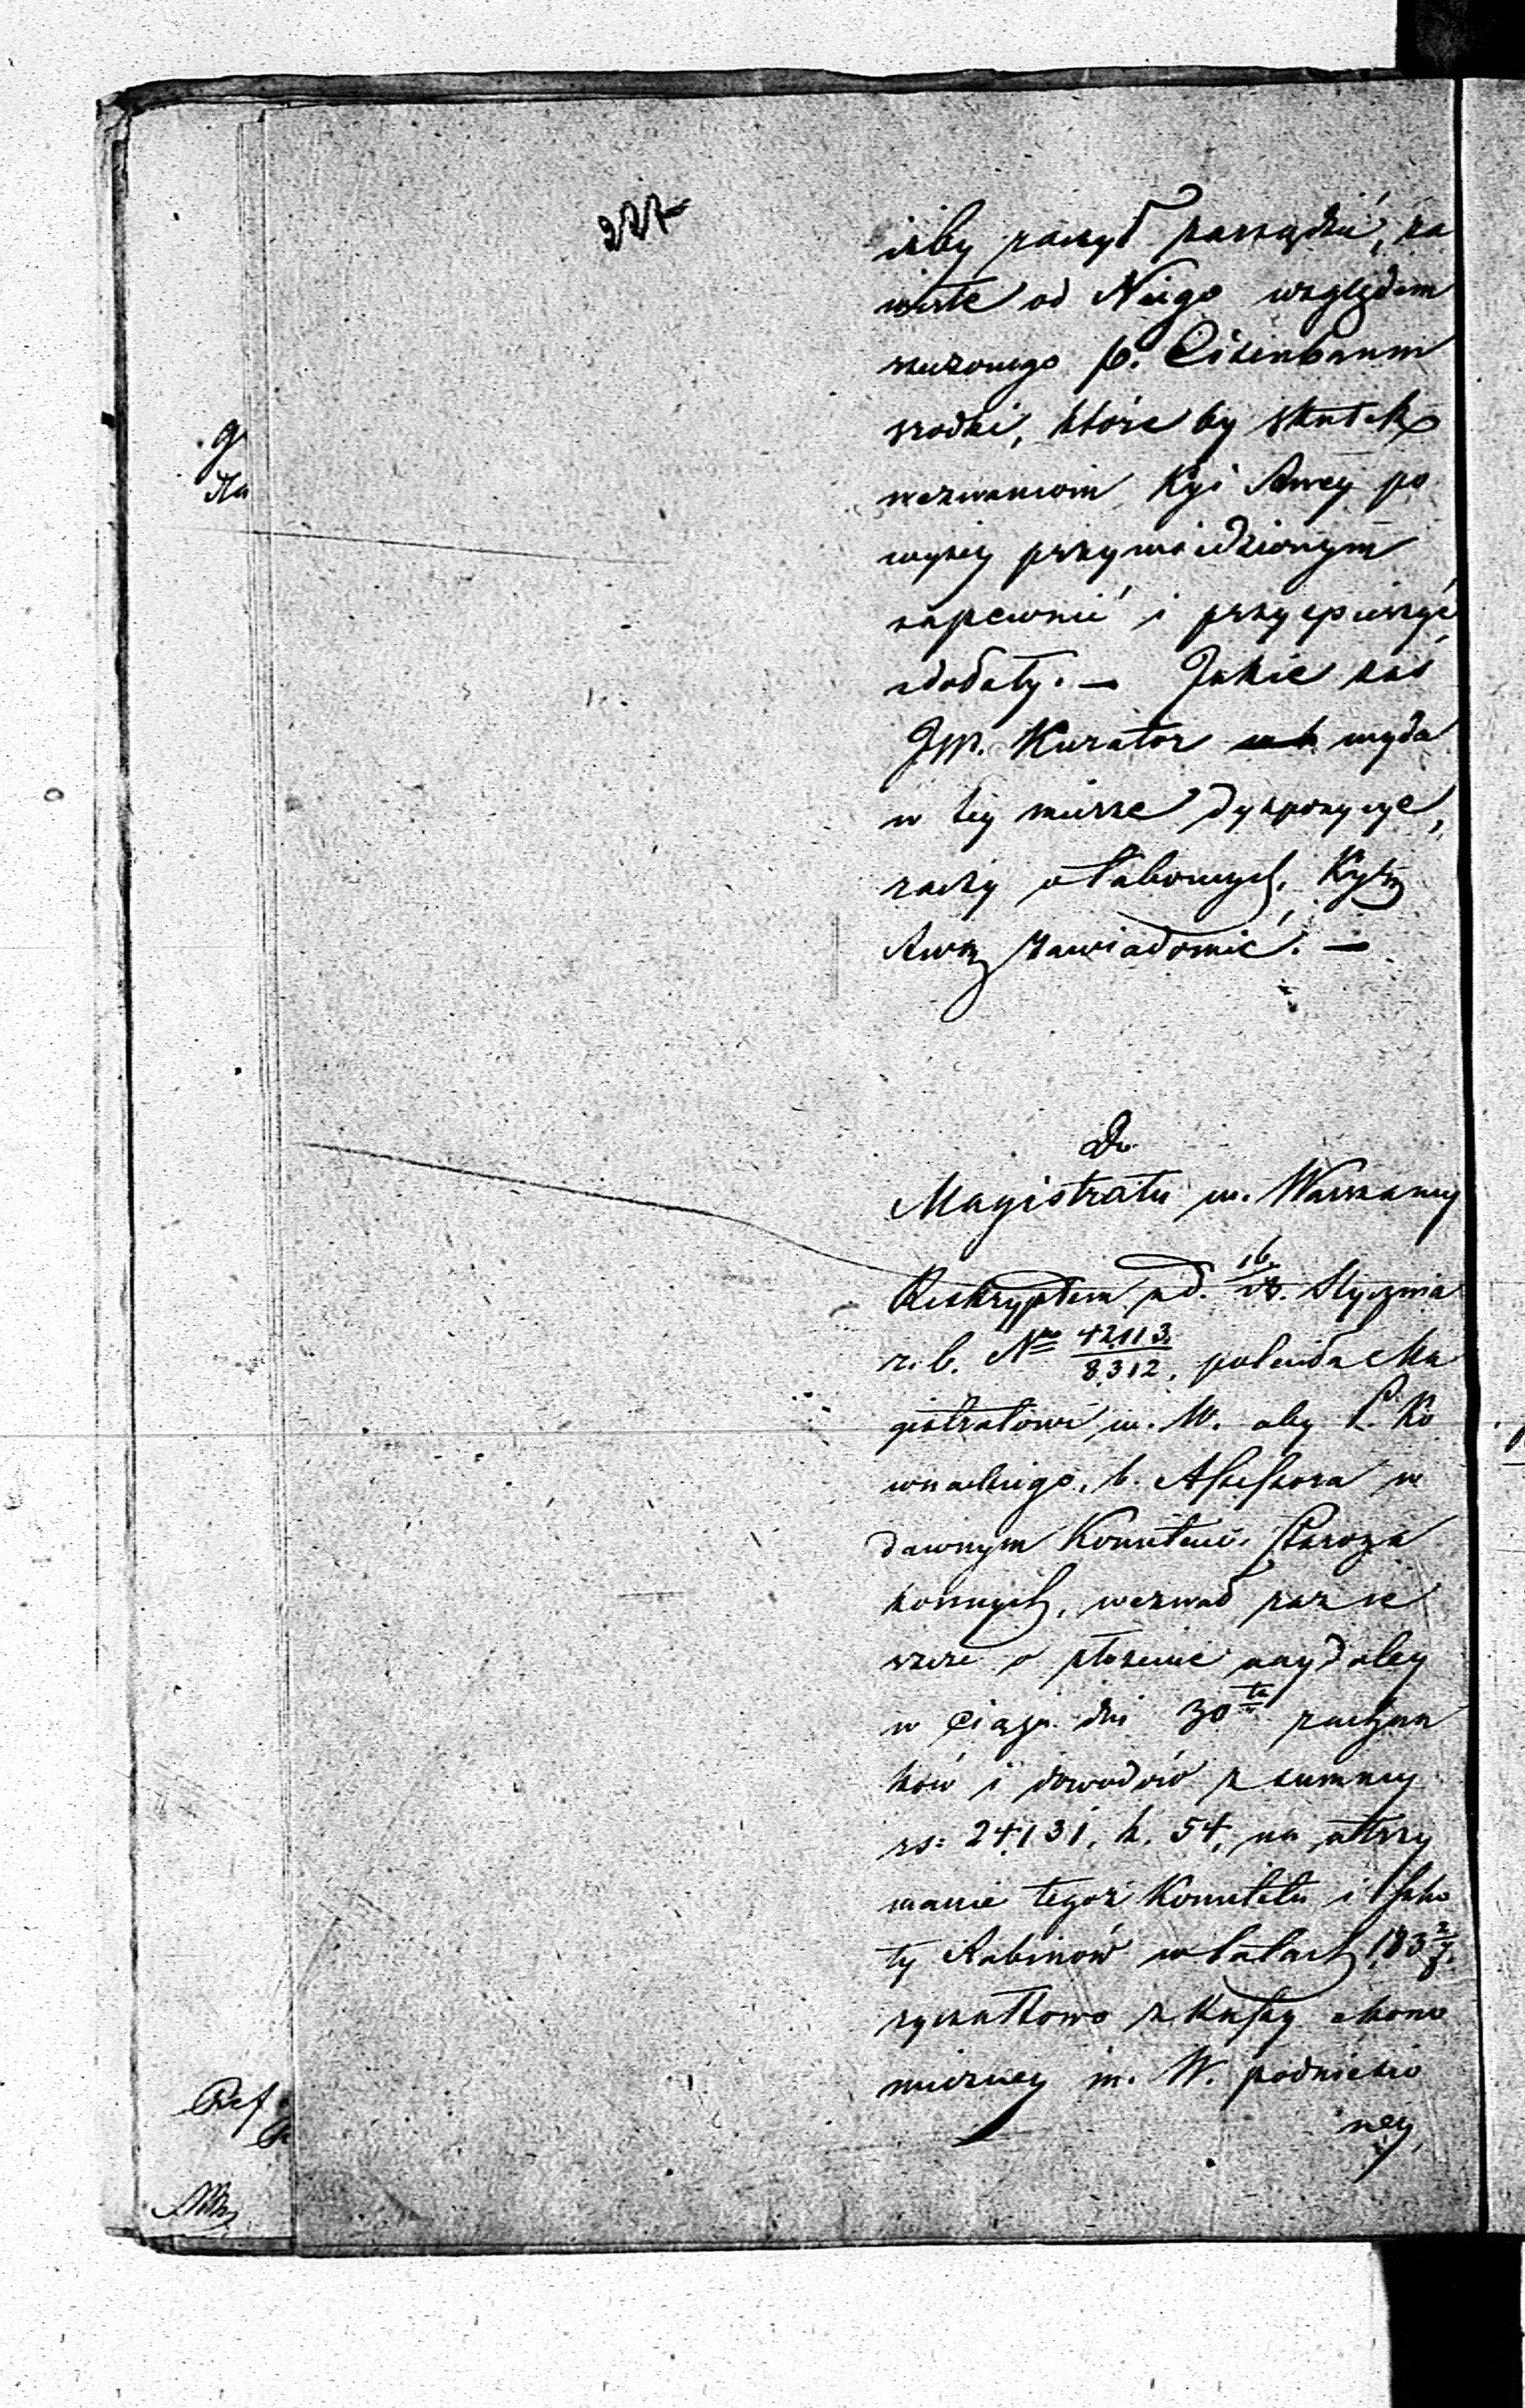 227
iżby raczył zarządzić, za
wisłe od Niego względem
rzeczonego p. Eisenbaum
srodki, które by skutek
wezwaniom Kyi Rwey po
wyżey przywiedzionym
zapewnić i przyspieszyć
zdołały. — Jakie zaś
JW. Kurator wyda
w tey mierze dyspozycye,
raczy o takowych, Kyią
Rwą zawiadomić. —
Do
Magistratu m. Warszawy
Reskryptem z d. 16/28 Stycznia
r. b. Nro 42113/8312, poleciła Ma
gistratowi m. W. aby P. Ko
wnackiego, b. Assessora w
dawnym Komitecie Staroza
konnych, wezwał raz je
szcze o złożenie naydaley
w ciągu dni 30tu rachun
ków i dowodów z summy
rs: 24,131, k. 54, na utrzy
manie tegoż Komitetu i Szko
ły Rabinów w latach
ryczałtowo z Kassy ekono
miczney m. W. podniesio
ney,
Ref